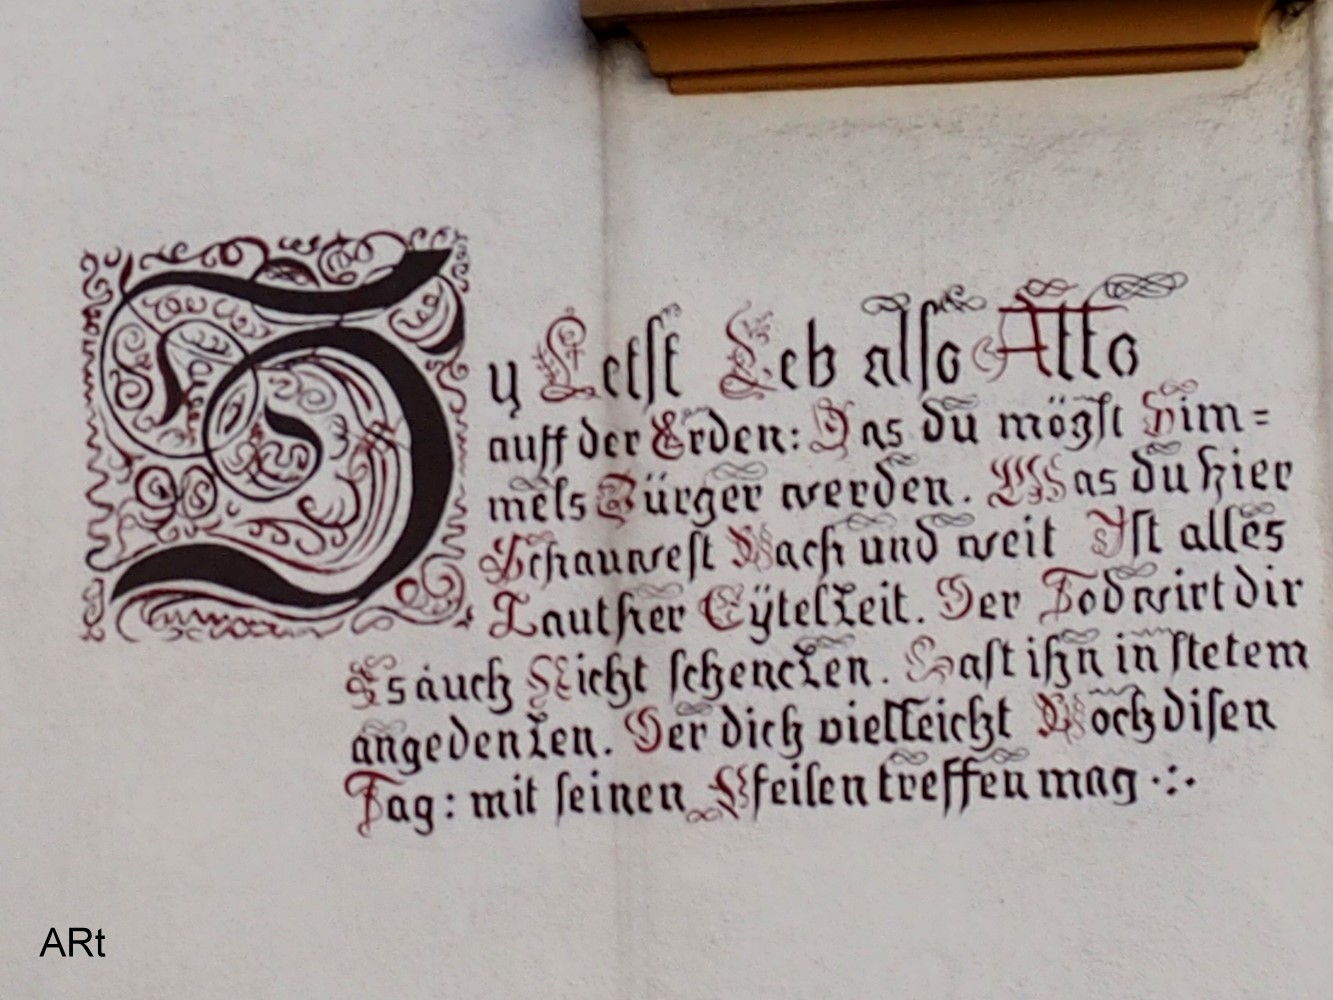 Dy Letst Leb also Allo
auff der Erden: Das du mögst Him=
mels Bürger werden. Was du hier
Schauwest Nach und weit Ist alles
Lauther Eÿtelkeit. Der Todwirt dir
Es auch Nicht schencken. Hast ihn in stetem
angedenken. Der dich vielleicht Noch disen
Tag: mit seinen Pfeilen treffen mag .:.
ARt